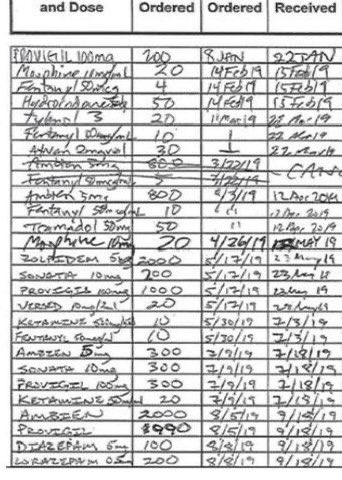 and Dose Ordered Ordered Received
PROVIGIL 100mg 200 8 JAN 22 JAN
Morphine 10mg/mL 20 14Feb19 15Feb19
Fentanyl 50mcg 4 14Feb19 15Feb19
Hydrocodone 50 14Feb19 15Feb19
Tylenol 3 20 11Mar19 22 Mar19
Fentanyl 10 22 Mar19
Ativan 2mg 30 22 Mar19
Ambien 5mg 600 3/22/19 CANC
Fentanyl 50mcg 5
Ambien 5mg 800 12 Apr 2019
Fentanyl 50mcg 10 " 12 Apr 2019
Tramadol 50mg 50 " 12 Apr 2019
Morphine 10mg 20 4/26/19 MAY 19
ZOLPIDEM 5mg 2000 5/17/19 23 May 19
SONATA 10mg 200 5/17/19 23 May 19
PROVIGIL 100mg 1000 5/17/19 23 May 19
VERSED 20 5/17/19
KETAMINE 10 5/30/19 7/3/19
FENTANYL 10 5/30/19 7/3/19
AMBIEN 5mg 300 7/9/19 7/18/19
SONATA 10mg 300 7/9/19 7/18/19
PROVIGIL 100mg 300 7/9/19 7/18/19
KETAMINE 20 7/9/19 7/18/19
AMBIEN 2000 8/5/19 9/18/19
PROVIGIL 8/5/19 9/18/19
DIAZEPAM 5mg 100 8/8/19 9/18/19
LORAZEPAM 200 8/8/19 9/18/19